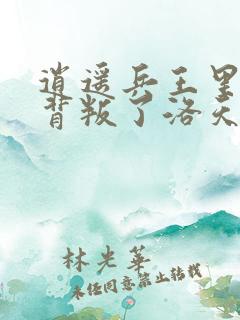 逍遥兵王里
背叛了洛天
林光华
未经同意禁止转载